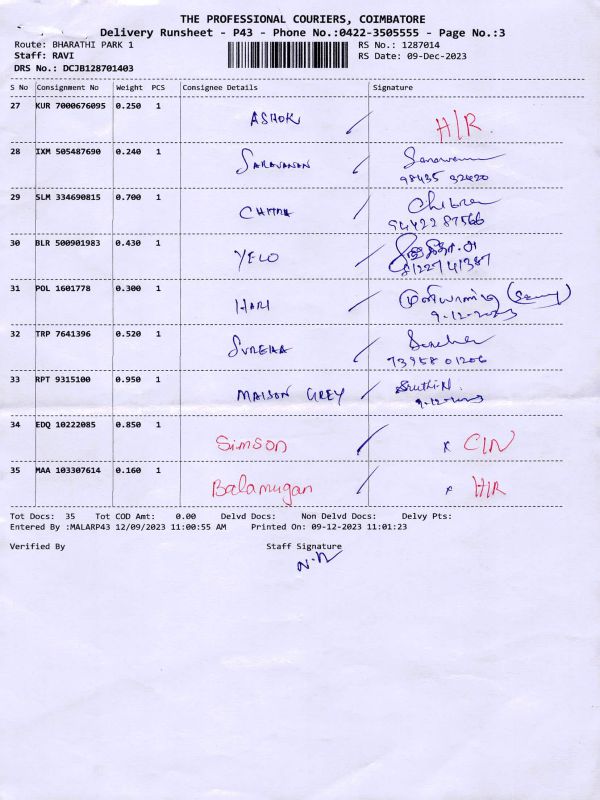 THE PROFESSIONAL COURIERS, COIMBATORE
Delivery Runsheet - P43 - Phone No.:0422-3505555 - Page No.:3
Route: BHARATHI PARK 1 RS No.: 1287014
Staff: RAVI RS Date: 09-Dec-2023
DRS No.: DCJB128701403
S No Consignment No Weight PCS Consignee Details Signature
27 KUR 7000676095 0.250 1 ASHOK H/R.
28 IXM 505487690 0.240 1 SARAVANAN
98435 32420
29 SLM 334690815 0.700 1 CHITRA Chitra
9442287566
30 BLR 500901983 0.430 1 YELO
8122741387
31 POL 1601778 0.300 1 HARI
9-12-2023
32 TRP 7641396 0.520 1 SUREKA
73958 01206
33 RPT 9315100 0.950 1 MAISON GREY Sruthi.N
9-12-2023
34 EDQ 10222085 0.850 1 Simson x CIN
35 MAA 103307614 0.160 1 Balamugan x H/R
Tot Docs: 35 Tot COD Amt: 0.00 Delvd Docs: Non Delvd Docs: Delvy Pts:
Entered By :MALARP43 12/09/2023 11:00:55 AM Printed On: 09-12-2023 11:01:23
Verified By Staff Signature